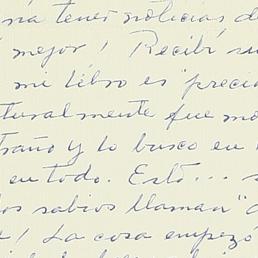 na tener noticias de
mejor! Recibí su
mi libro es "precio
turalmente fue mo
traño y lo busco en
en todo. Esto... s
los sabios llaman "
! La cosa empezó